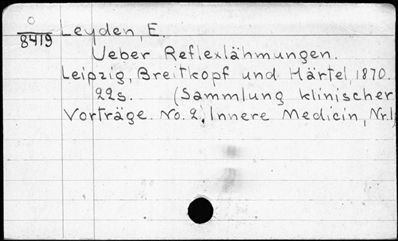 O
8419
Leyden, E.
Ueber Reflexlähmungen.
Leipzig, Breitkopf und Härtel, 1870.
22s. (Sammlung klinischer
Vorträge No. 2, Innere Medicin, Nr. 1)